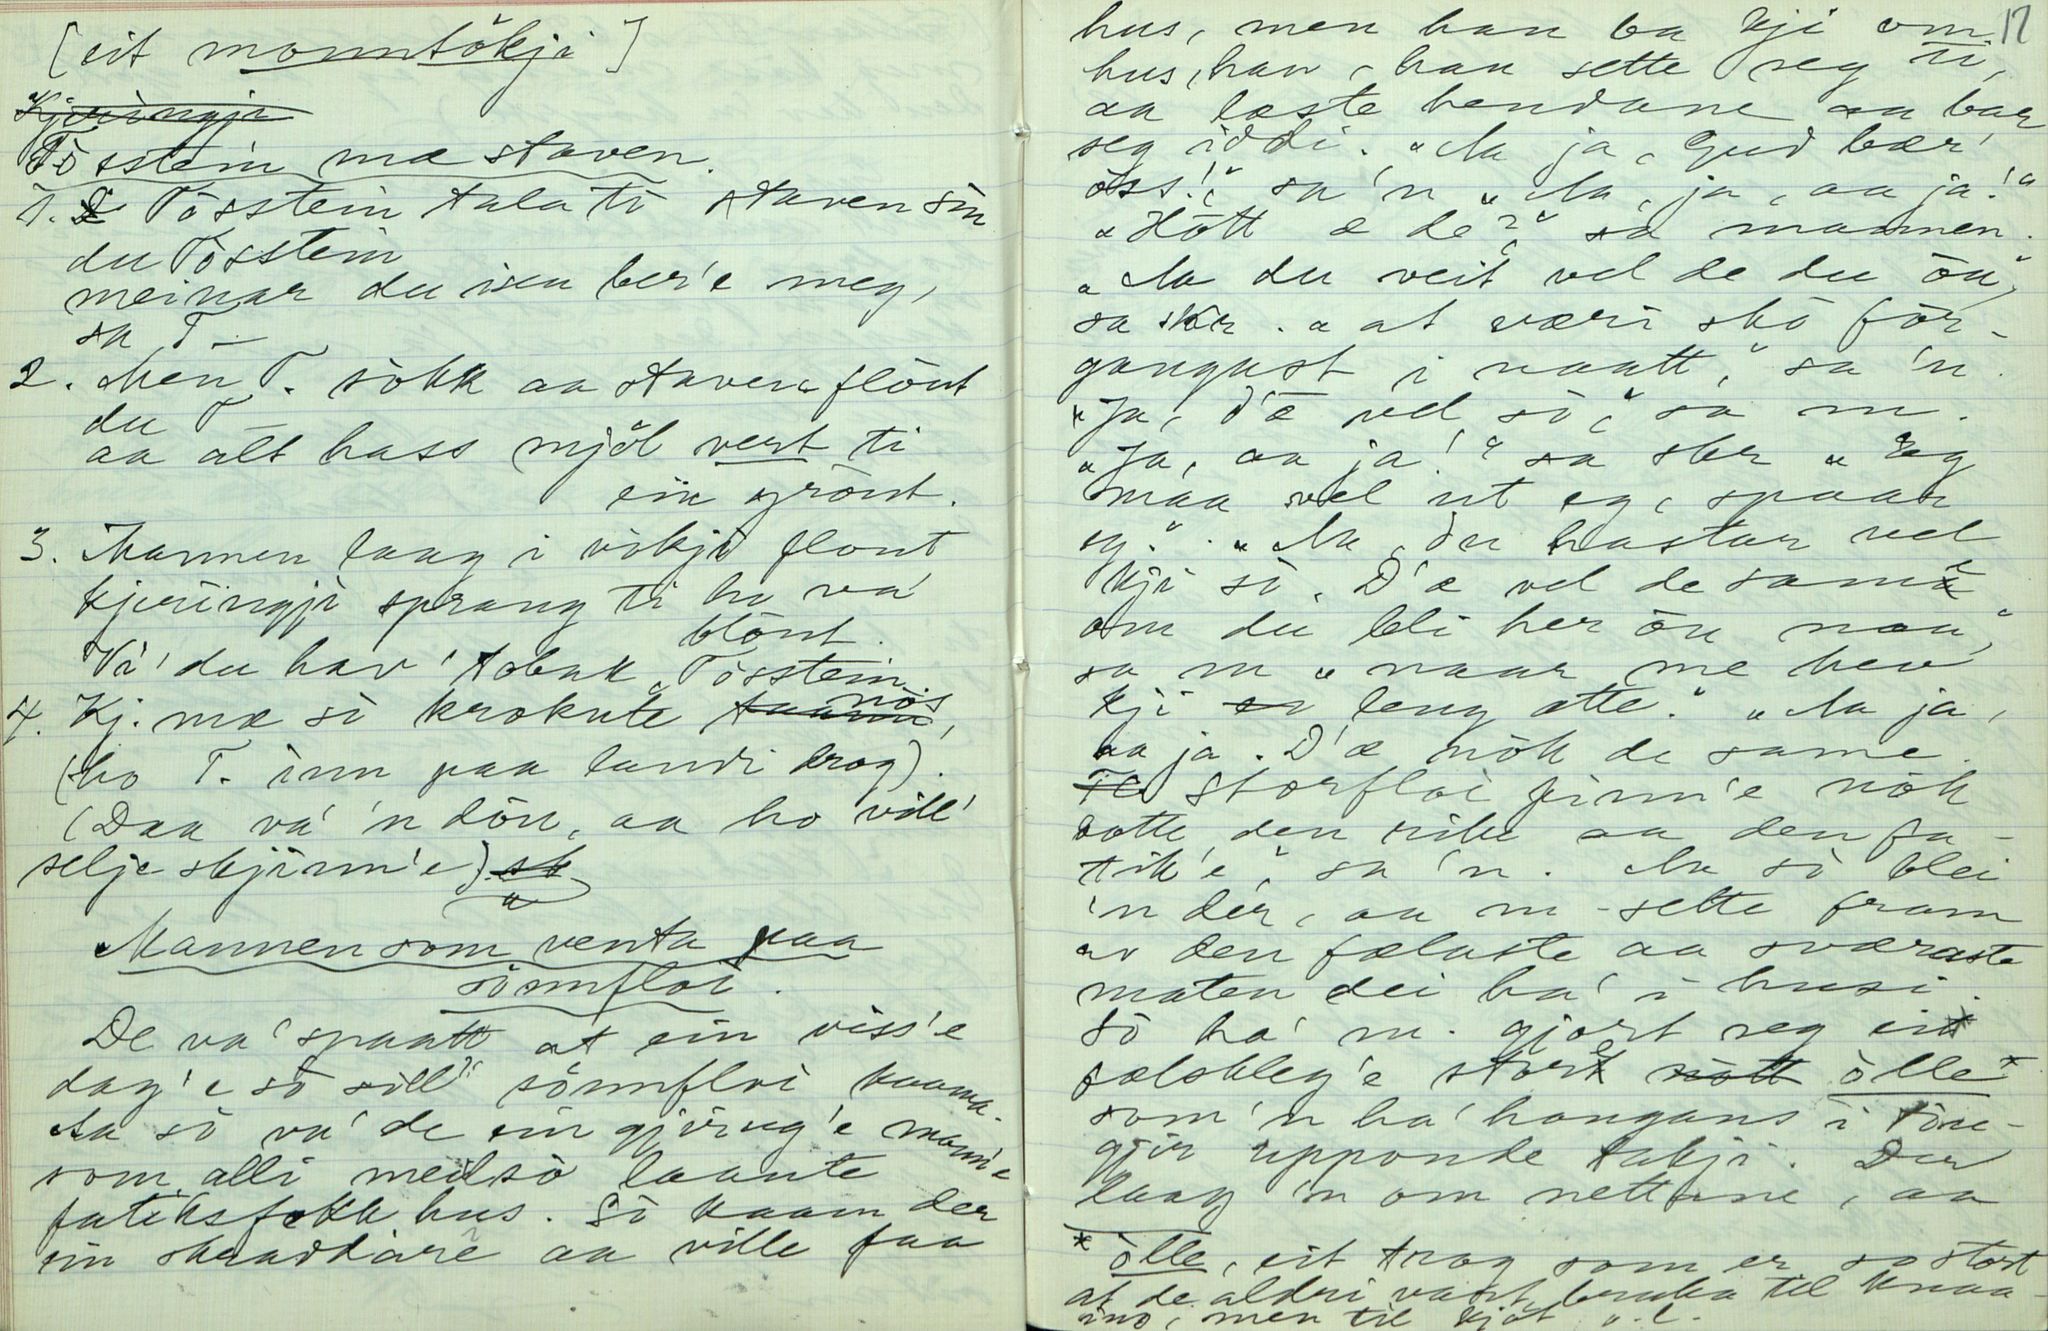 [eit monntökji]
Kjeringji
Tösstein mæ staven.
1. Tösstein tala ti staven sin
du Tösstein
meinar du isen ber'e meg,
sa T_
2. Men T. sökk aa staven flöut
du T_
aa alt hass mjöl vert ti
ein gröut.
3. Mannen laag i vikji flout
kjeringji sprang ti ho va'
blöut.
Vi' du hav' tobak, Tösstein.
4. Kj. mæ si krokute taann nös,
(ho T. inn paa landi drog).
(Daa va' 'n döu, aa ho vill'
selje skjinn'e)
Mannen som venta paa
sönnfloi.
De va' spaatt at ein viss'e
dag'e so sill' sönnfloi kaama.
Aa so va' de ein gjerug'e mann'e
som alli meilso laante
fatiksfokk hus. So kaam der
ein skraddare aa ville faa
17
hus, men han ba kji om
hus, han, han sette seg ti,
aa læste hendane aa bar
seg iddi. "Aa ja, Gud bær'
oss!" sa'n "Aa, ja, aa ja!"
"Hött æ de?" sa mannen.
"Aa du veit vel de du öu",
sa skr. "at væri ska for-
gangast i naatt," sa 'n.
"Ja, d'æ vel so," sa m.
"Ja, aa ja!" sa skr "Eg
maa vel ut eg, spaar
eg." "Aa, du hastar vel
kji so. D'æ vel de sama
om du bli her öu naa",
sa m "naar me hev
kji leng atte." "Aa ja,
aa ja. D'æ nok de same.
Storfloi finn'e nok
botte den rike aa den fa-
tik'e", sa 'n. Aa so blei
'n der, aa m sette fram
av den fælaste aa sværaste
maten dei ha' i husi.
So ha' m. gjort seg eit*
sælsbleg'e stort nött ölle*
som 'n ha' hangans i töu-
gjir upponde takji. Der
laag 'n om nettane, aa
* ölle, eit trog som er so stort
at de aldri vart bruka til knaa-
ing, men til kjöt o.l.